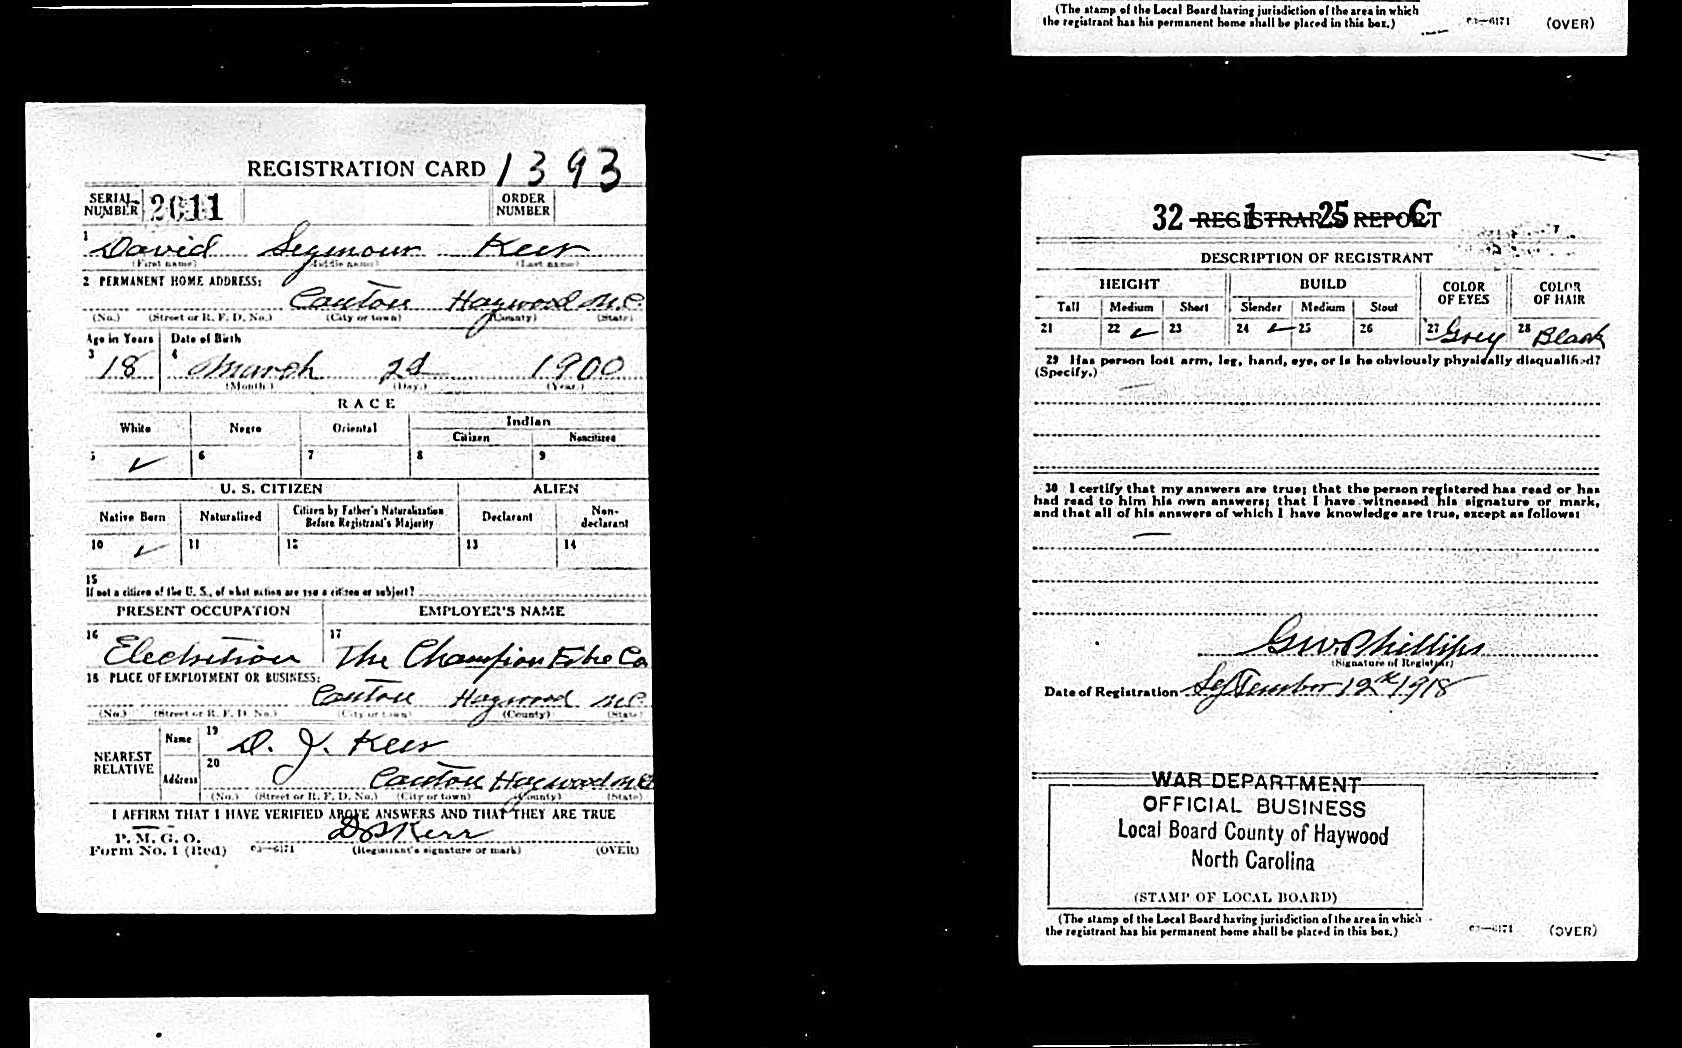 (The stamp of the Local Board having jurisdiction of the area in which
the registrant has his permanent home shall be placed in this box.)
03—6171 (OVER)
REGISTRATION CARD 1393
SERIAL NUMBER 2611 ORDER NUMBER
1 David Seymour Kerr
(First name) (Middle name) (Last name)
2 PERMANENT HOME ADDRESS:
Canton Haywood N.C.
(No.) (Street or R. F. D. No.) (City or town) (County) (State)
Age in Years Date of Birth
3 18 4 March 2d 1900
(Month.) (Day.) (Year.)
RACE
White Negro Oriental Indian
Citizen Noncitizen
5 ✓ 6 7 8 9
U. S. CITIZEN ALIEN
Native Born Naturalized Citizen by Father's Naturalization Before Registrant's Majority Declarant Non-declarant
10 ✓ 11 12 13 14
15
If not a citizen of the U. S., of what nation are you a citizen or subject?
PRESENT OCCUPATION EMPLOYER'S NAME
16 Electrition 17 The Champion Fibre Co
18 PLACE OF EMPLOYMENT OR BUSINESS:
Canton Haywood N.C.
(No.) (Street or R. F. D. No.) (City or town) (County) (State)
NEAREST RELATIVE
Name 19 D. J. Kerr
Address 20 Canton Haywood N.C.
(No.) (Street or R. F. D. No.) (City or town) (County) (State)
I AFFIRM THAT I HAVE VERIFIED ABOVE ANSWERS AND THAT THEY ARE TRUE
P. M. G. O.
Form No. 1 (Red) 03—6171 D S Kerr
(Registrant's signature or mark) (OVER)
32 1 25 C
REGISTRAR'S REPORT
DESCRIPTION OF REGISTRANT
HEIGHT BUILD COLOR OF EYES COLOR OF HAIR
Tall Medium Short Slender Medium Stout
21 22 ✓ 23 24 ✓ 25 26 27 Grey 28 Black
29 Has person lost arm, leg, hand, eye, or is he obviously physically disqualified?
(Specify.)
30 I certify that my answers are true; that the person registered has read or has
had read to him his own answers; that I have witnessed his signature or mark,
and that all of his answers of which I have knowledge are true, except as follows:
G.W. Phillips
(Signature of Registrar)
Date of Registration September 12th 1918
WAR DEPARTMENT
OFFICIAL BUSINESS
Local Board County of Haywood
North Carolina
(STAMP OF LOCAL BOARD)
(The stamp of the Local Board having jurisdiction of the area in which
the registrant has his permanent home shall be placed in this box.)
03—6171 (OVER)